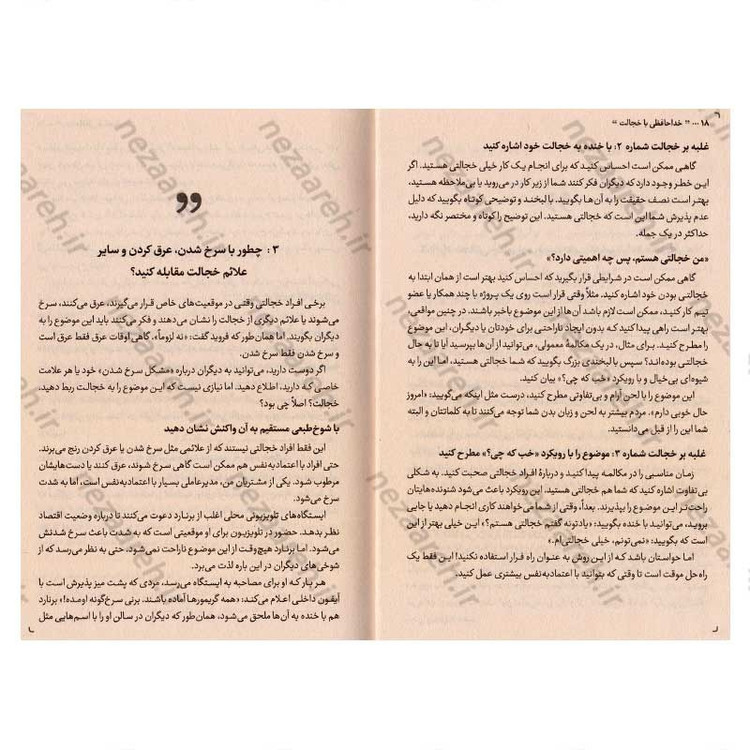 ۱۸ ... " خداحافظی با خجالت "
غلبه بر خجالت شماره ۲: با خنده به خجالت خود اشاره کنید
گاهی ممکن است احساس کنید که برای انجام یک کار خیلی خجالتی هستید. اگر
این خطر وجود دارد که دیگران فکر کنند شما از زیر کار در می‌روید یا بی‌ملاحظه هستید،
بهتر است نصف حقیقت را به آن‌ها بگویید. با لبخند و توضیحی کوتاه بگویید که دلیل
عدم پذیرش شما این است که خجالتی هستید. این توضیح را کوتاه و مختصر نگه دارید،
حداکثر در یک جمله.
«من خجالتی هستم، پس چه اهمیتی دارد؟»
گاهی ممکن است در شرایطی قرار بگیرید که احساس کنید بهتر است از همان ابتدا به
خجالتی بودن خود اشاره کنید. مثلاً وقتی قرار است روی یک پروژه با چند همکار یا عضو
تیم کار کنید، ممکن است لازم باشد آن‌ها از این موضوع باخبر باشند. در چنین مواقعی،
بهتر است راهی پیدا کنید که بدون ایجاد ناراحتی برای خودتان یا دیگران، این موضوع
را مطرح کنید. برای مثال، در یک مکالمهٔ معمولی، می‌توانید از آن‌ها بپرسید آیا تا به حال
خجالتی بوده‌اند؟ سپس با لبخندی بزرگ بگویید که شما خجالتی هستید، اما این را به
شیوه‌ای بی‌خیال و با رویکرد «خب که چی؟» بیان کنید.
این موضوع را با لحن آرام و بی‌تفاوتی مطرح کنید، درست مثل اینکه می‌گویید: «امروز
حال خوبی دارم». مردم بیشتر به لحن و زبان بدن شما توجه می‌کنند تا به کلماتتان و البته
شما این را از قبل می‌دانستید.
غلبه بر خجالت شماره ۳: موضوع را با رویکرد «خب که چی؟» مطرح کنید
زمان مناسبی را در مکالمه پیدا کنید و دربارهٔ افراد خجالتی صحبت کنید. به شکلی
بی‌تفاوت اشاره کنید که شما هم خجالتی هستید. این رویکرد باعث می‌شود شنونده‌هایتان
راحت‌تر این موضوع را بپذیرند. بعداً، وقتی از شما می‌خواهند کاری انجام دهید یا جایی
بروید، می‌توانید با خنده بگویید: «یادتونه گفتم خجالتی هستم؟» این خیلی بهتر از این
است که بگویید: «نمی‌تونم، خیلی خجالتی‌ام.»
اما حواستان باشد که از این روش به عنوان راه فرار استفاده نکنید! این فقط یک
راه حل موقت است تا وقتی که بتوانید با اعتمادبه‌نفس بیشتری عمل کنید.
۳ : چطور با سرخ شدن، عرق کردن و سایر
علائم خجالت مقابله کنید؟
برخی افراد خجالتی وقتی در موقعیت‌های خاص قرار می‌گیرند، عرق می‌کنند، سرخ
می‌شوند یا علائم دیگری از خجالت را نشان می‌دهند و فکر می‌کنند باید این موضوع را به
دیگران بگویند. اما همان‌طور که فروید گفت: «نه لزوماً». گاهی اوقات عرق فقط عرق است
و سرخ شدن فقط سرخ شدن.
اگر دوست دارید، می‌توانید به دیگران درباره «مشکل سرخ شدن» خود یا هر علامت
خاصی که دارید، اطلاع دهید. اما نیازی نیست که این موضوع را به خجالت ربط دهید.
خجالت؟ اصلاً چی بود؟
با شوخ‌طبعی مستقیم به آن واکنش نشان دهید
این فقط افراد خجالتی نیستند که از علائمی مثل سرخ شدن یا عرق کردن رنج می‌برند.
حتی افراد با اعتمادبه‌نفس هم ممکن است گاهی سرخ شوند، عرق کنند یا دست‌هایشان
مرطوب شود. یکی از مشتریان من، مدیرعاملی بسیار با اعتمادبه‌نفس است، اما به شدت
سرخ می‌شود.
ایستگاه‌های تلویزیونی محلی اغلب از برنارد دعوت می‌کنند تا درباره وضعیت اقتصاد
نظر بدهد. حضور در تلویزیون برای او موقعیتی است که به شدت باعث سرخ شدنش
می‌شود. اما برنارد هیچ‌وقت از این موضوع ناراحت نمی‌شود. حتی به نظر می‌رسد که از
شوخی‌های دیگران در این باره لذت می‌برد.
هر بار که او برای مصاحبه به ایستگاه می‌رسد، مردی که پشت میز پذیرش است با
آیفون داخلی اعلام می‌کند: «همه گریمورها آماده باشند. برنی سرخ‌گونه اومده!» برنارد
هم با خنده به آن‌ها ملحق می‌شود، همان‌طور که دیگران در سالن او را با اسم‌هایی مثل
nezaareh.ir